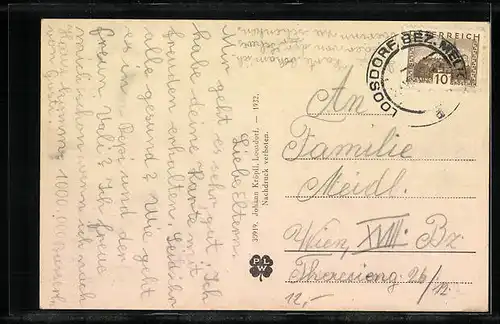 Liebe Eltern.
Mir geht es sehr gut. Ich
habe deine Karte mit
freuden erhalten. Seid ihr
alle gesund? Wie geht
es in Pepi und der
freun Vali? Ich freue
mich schon wenn ich nach
Haus komme. 1000000 Busserl
von Gusti.
33919. Johann Kröpfl, Loosdorf. — 1932.
Nachdruck verboten.
P L W
LOOSDORF, BEZ. MELK
ÖSTERREICH
10
An
Familie
Meidl.
Wien, XVIII. Bz.
Theresieng. 26/12
12,-